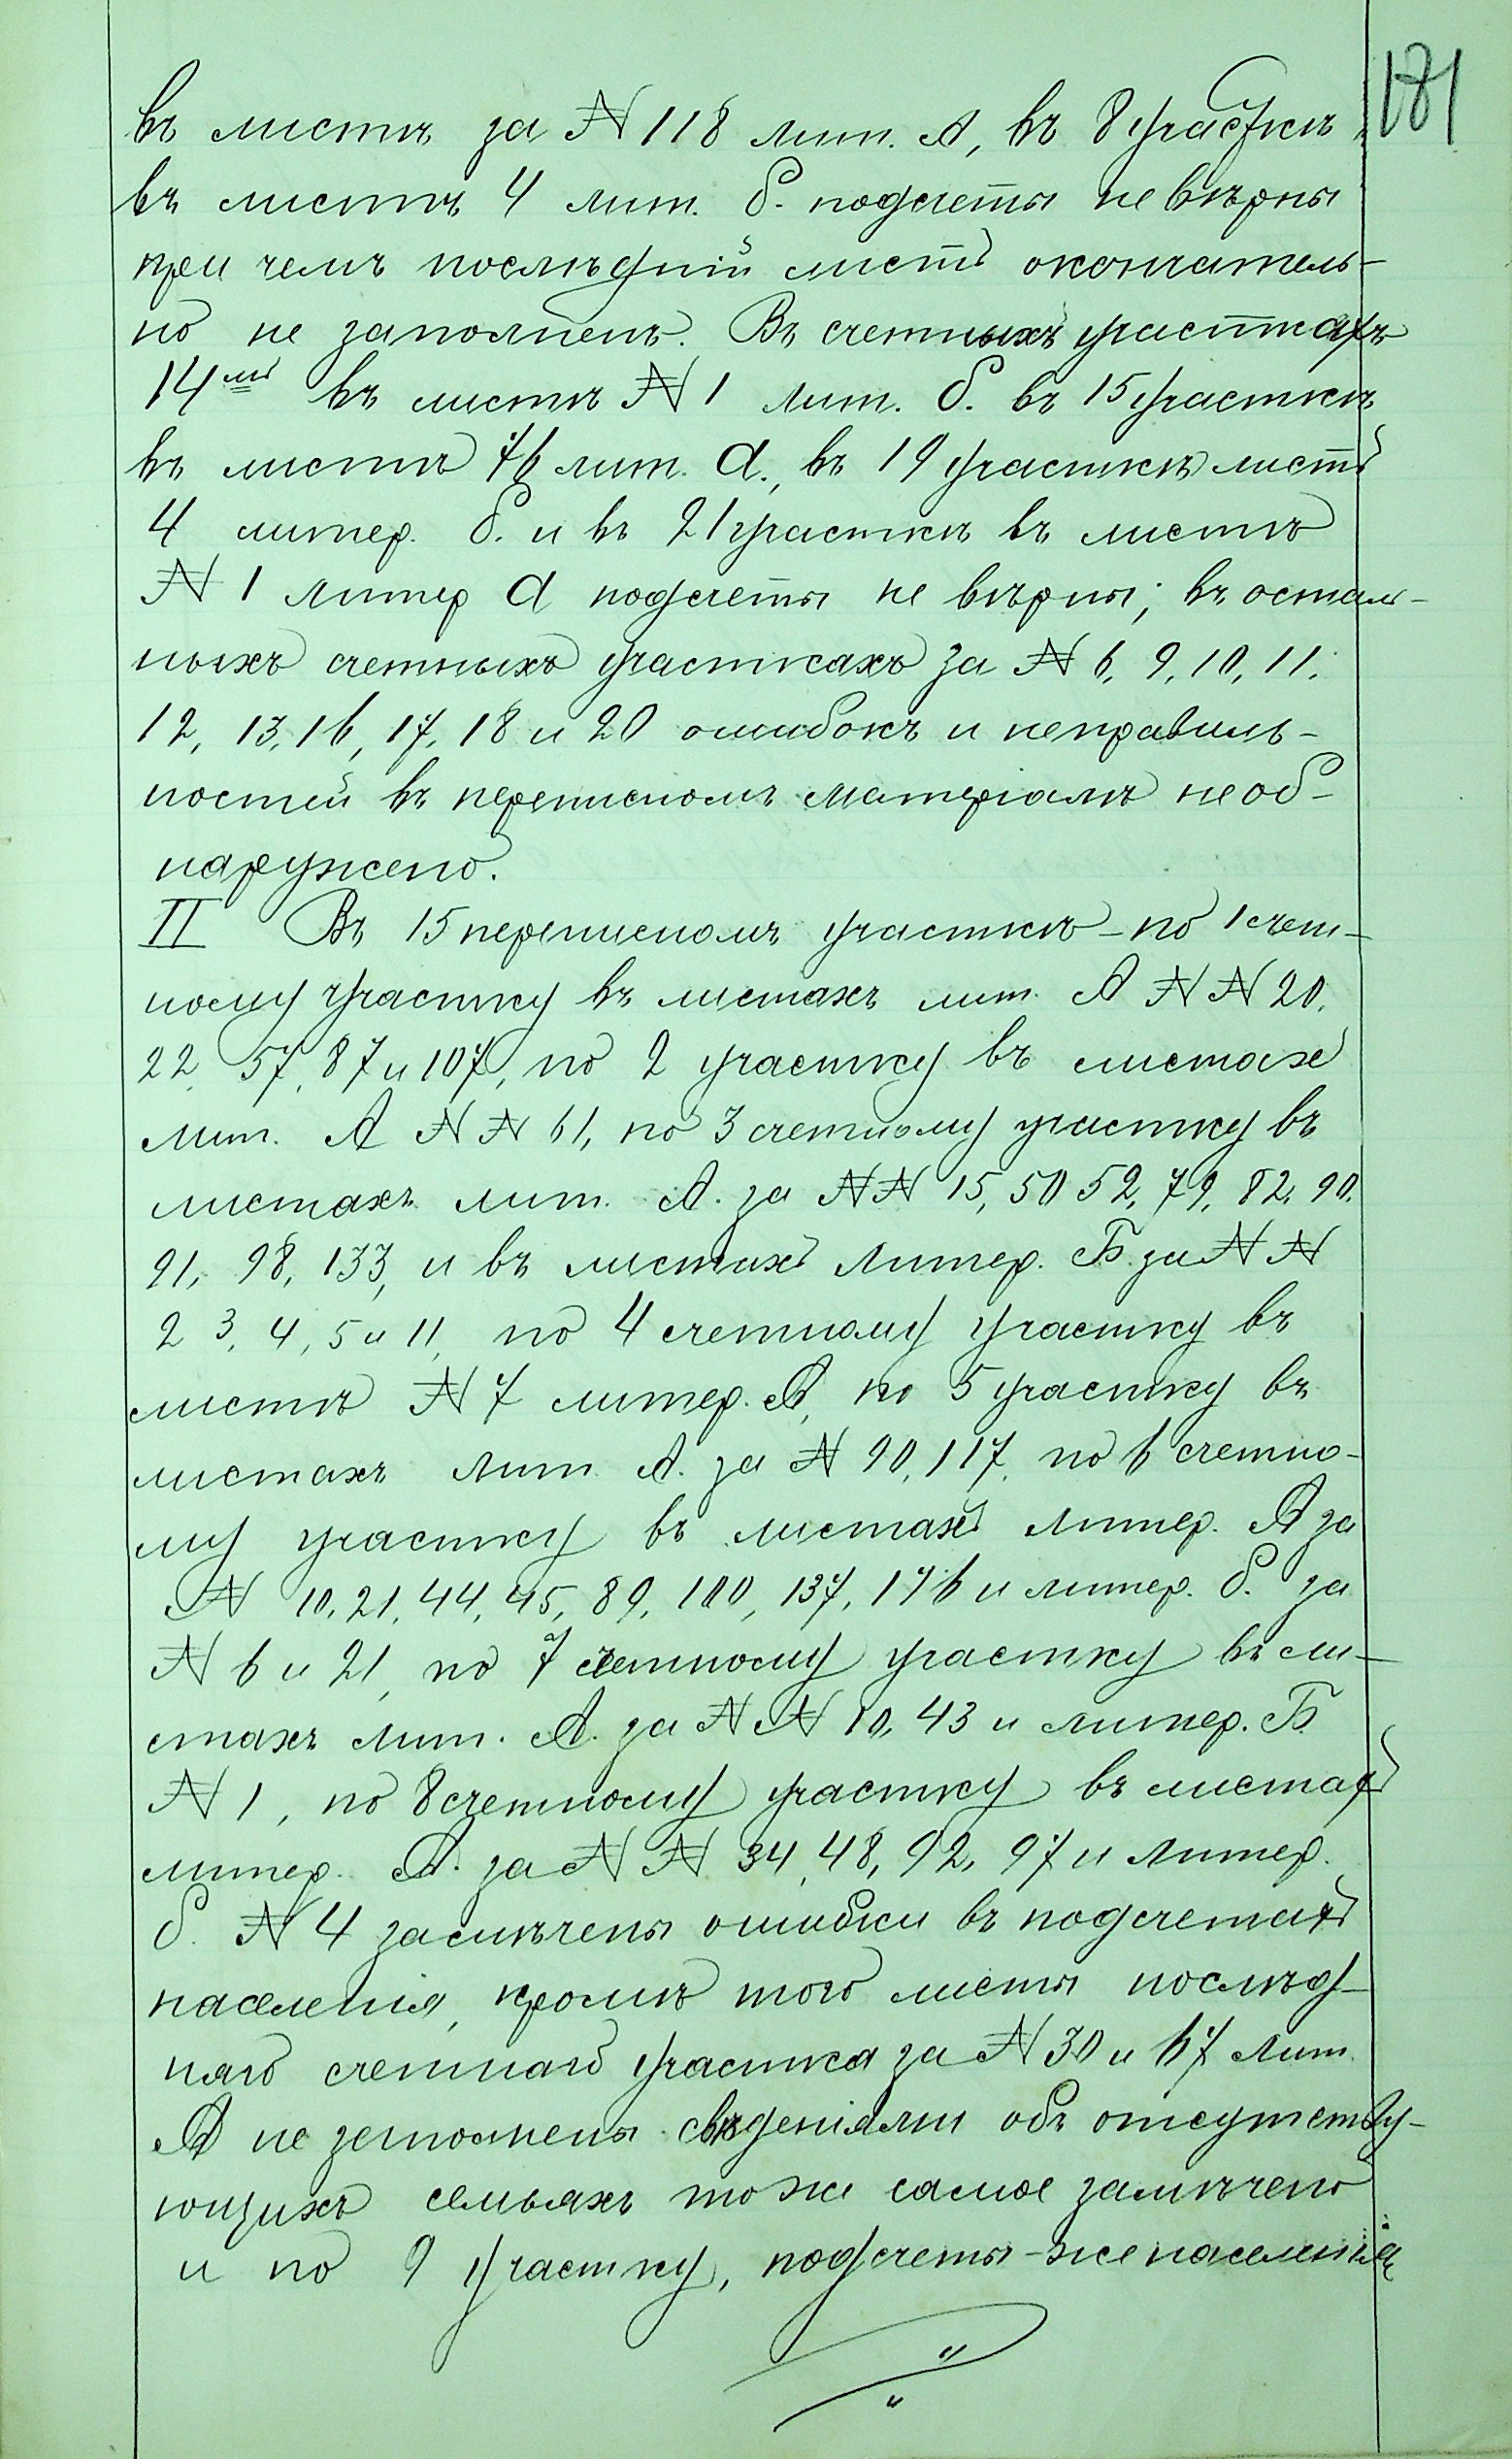 181
въ листѣ за № 118 лит. А, въ 8 участкѣ
въ листѣ 4 лит. б. подсчеты не вѣрны
при чемъ послѣдній листъ окончатель-
но не заполненъ. Въ счетныхъ участкахъ
14мъ въ листѣ № 1 лит. б. въ 15 участкѣ
въ листѣ 76 лит. а., въ 19 участкѣ листъ
4 литер. б. и въ 21 участкѣ въ листѣ
№ 1 литер а подсчеты не вѣрны; въ осталь-
ныхъ счетныхъ участкахъ за № 6, 9, 10, 11,
12, 13, 16, 17, 18 и 20 ошибокъ и неправиль-
ностей въ переписномъ матеріалѣ не об-
наружено.
II Въ 15 переписномъ участкѣ - по 1 счет-
ному участку въ листахъ лит. А № № 20,
22, 57, 87 и 107, по 2 участку въ листахъ
лит. А № № 61, по 3 счетному участку въ
листахъ лит. А. за № № 15, 50 52, 79, 82, 90,
91, 98, 133, и въ листахъ литер. Б. за № №
2 3, 4, 5 и 11, по 4 счетному участку въ
листѣ № 7 литер. А, по 5 участку въ
листахъ лит. А. за № 90, 117, по 6 счетно-
му участку въ листахъ литер. А за
№ 10, 21, 44, 45, 89, 100, 137, 176 и литер. б. за
№ 6 и 21, по 7 счетному участку въ ли-
стахъ лит. А. за № № 10, 43 и литер. Б
№ 1, по 8 счетному участку въ листахъ
литер. А. за № № 34, 48, 92, 97 и литер.
б. № 4 замѣчены ошибки въ подсчетахъ
населенія, кромѣ того листы послѣд-
няго счетнаго участка за № 30 и 67 лит.
А не заполнены свѣденіями объ отсутству-
ющихъ семьяхъ то же самое замѣчено
и по 9 участку, подсчеты-же населенія